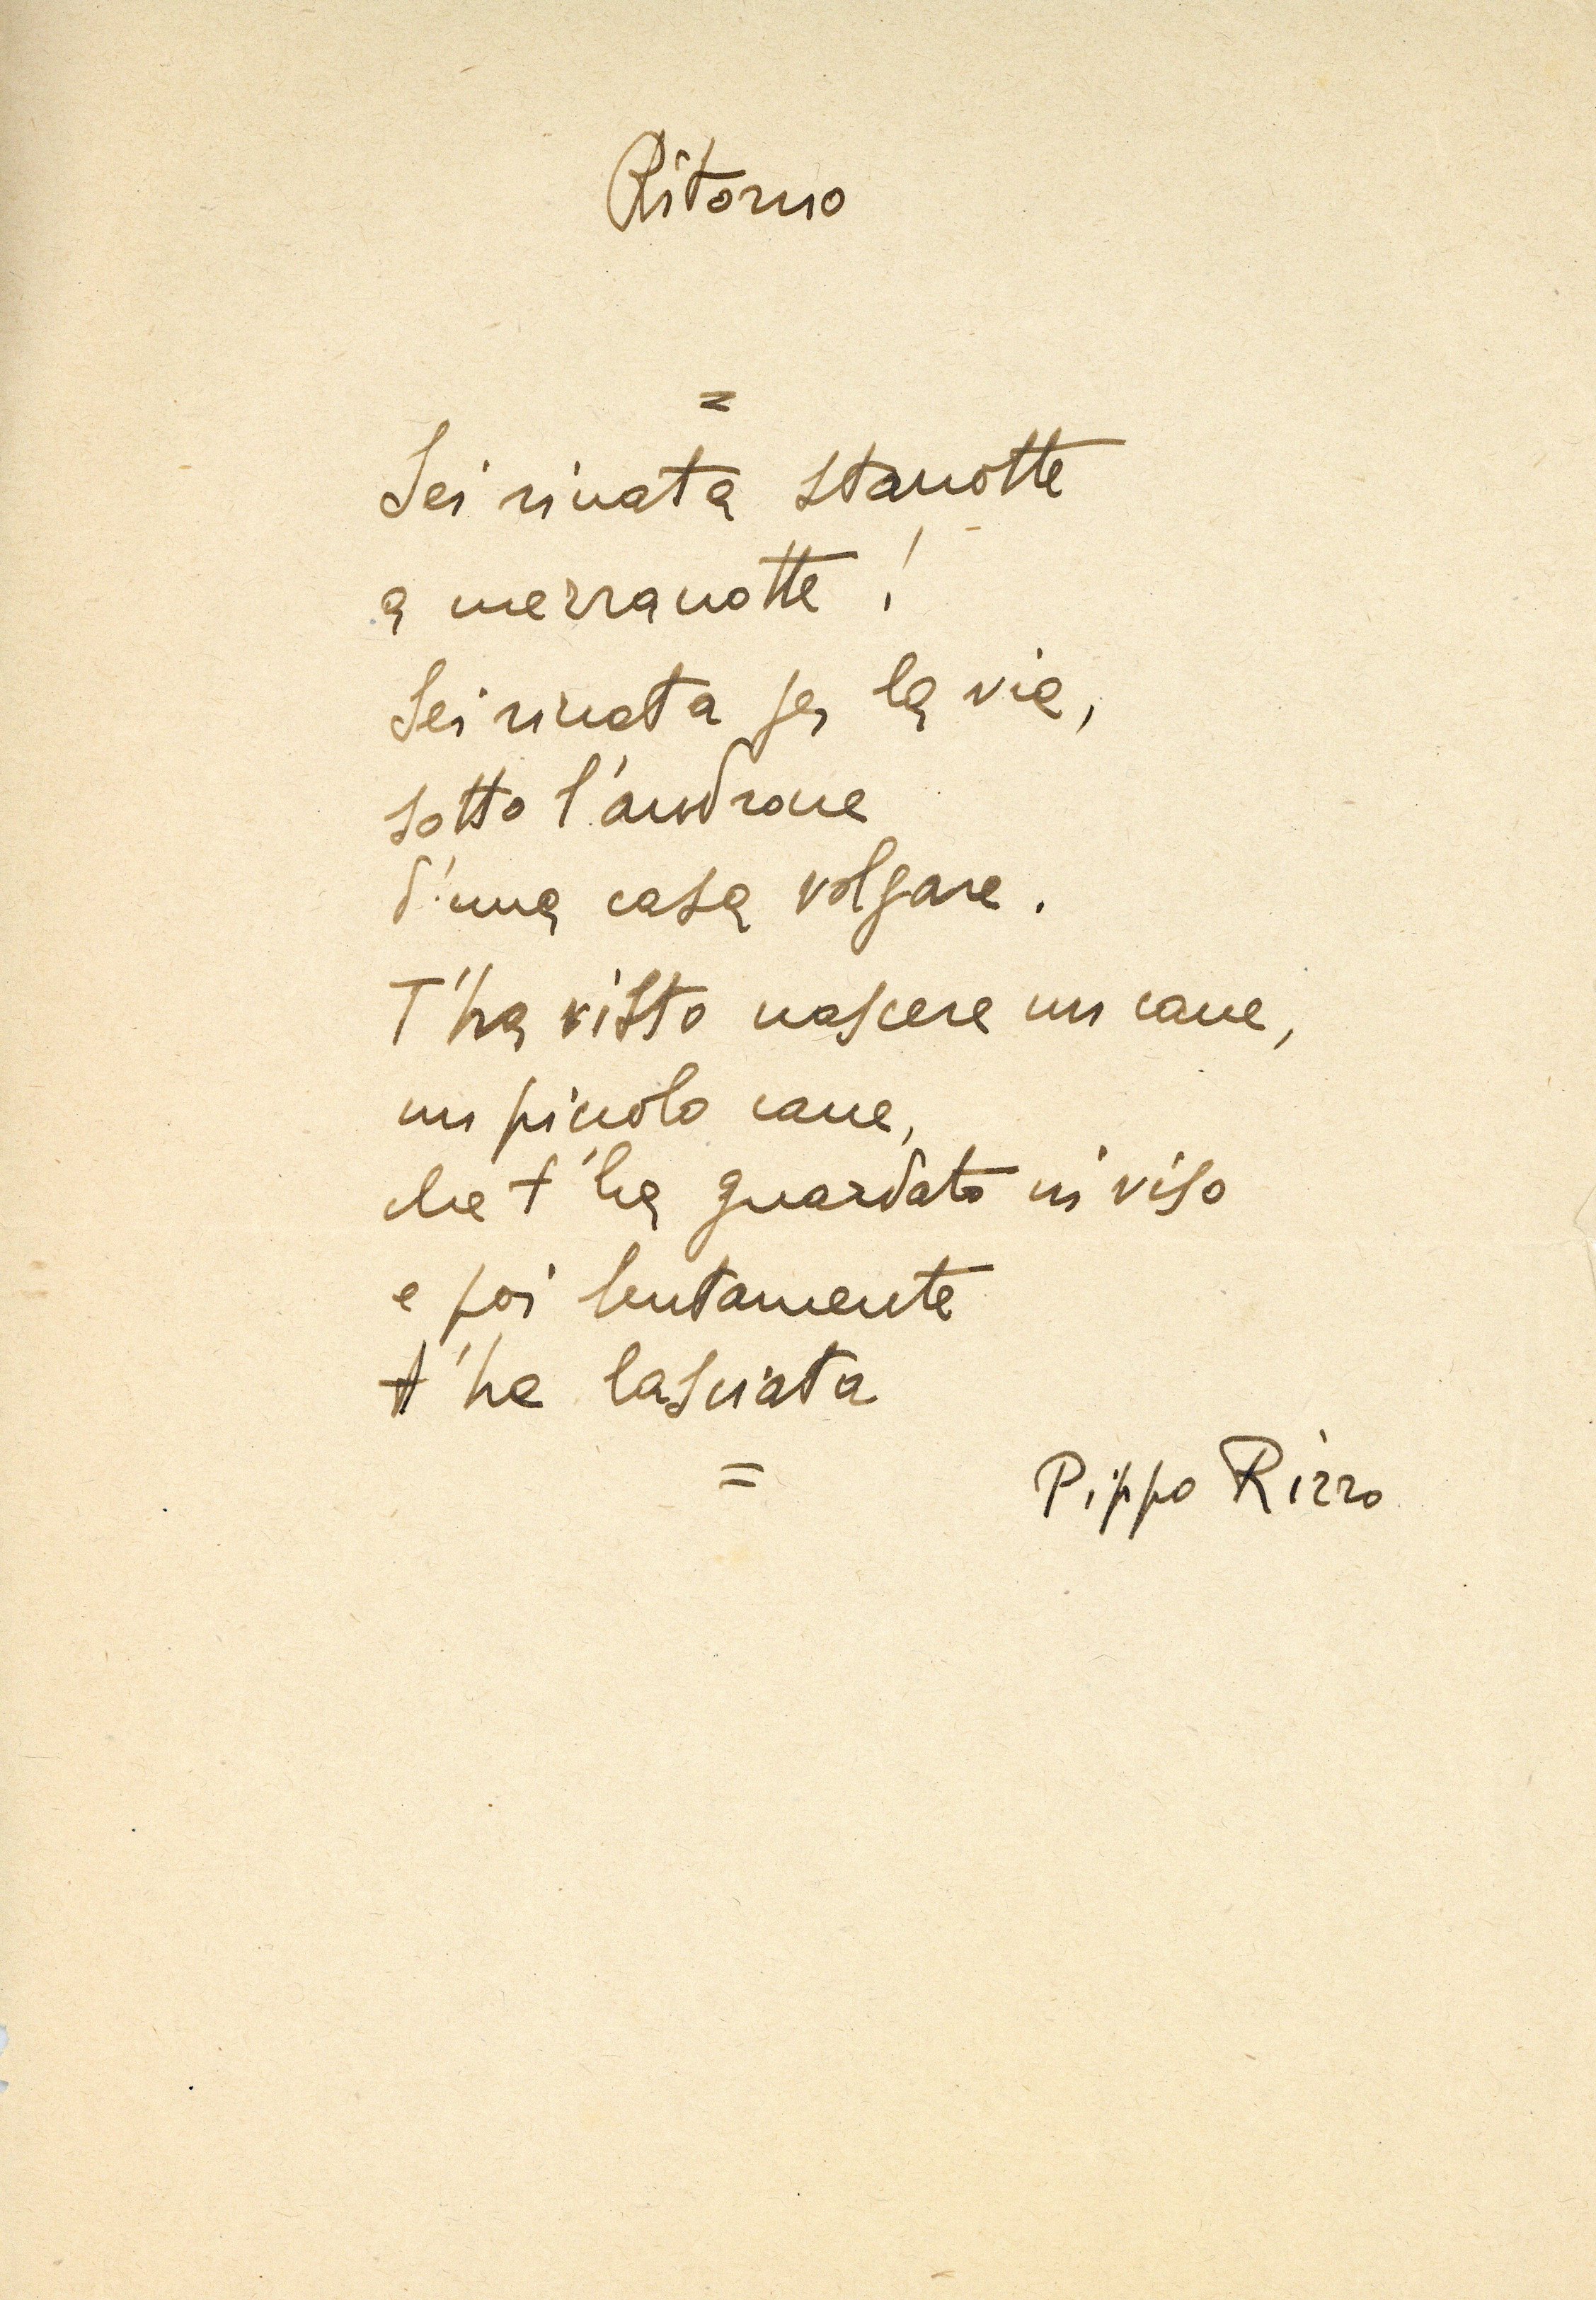 Ritorno
=
Sei rinata stanotte
a mezzanotte!
Sei rinata per la via,
sotto l'androne
d'una casa volgare.
T'ha visto nascere un cane,
un piccolo cane,
che t'ha guardato in viso
e poi lentamente
t'ha lasciata
=
Pippo Rizzo